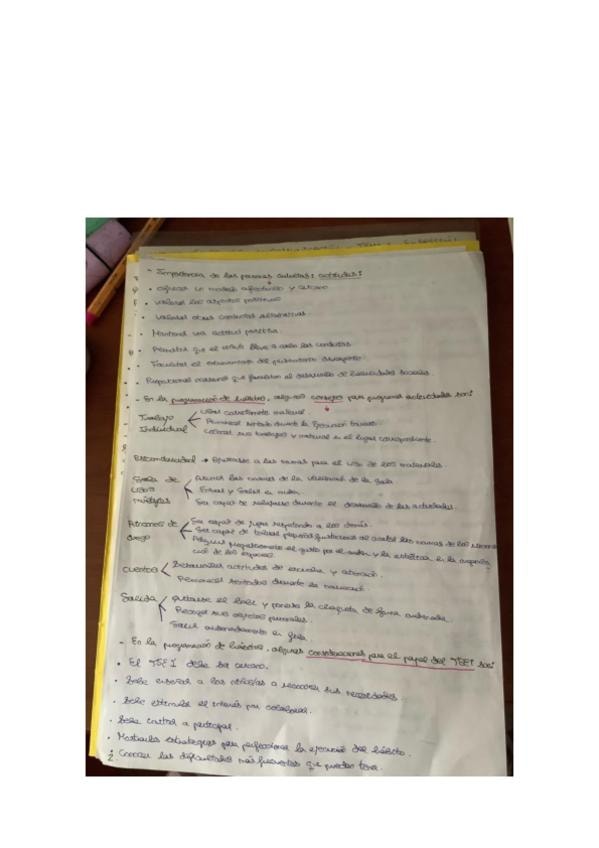 - Importancia de las personas adultas: actitudes:
• Ofrecer un modelo afectuoso y cercano
• Valorar los aspectos positivos
• Valorar otras conductas alternativas
• Mantener una actitud positiva.
• Permitir que el niño/a lleve a cabo las conductas
• Facilitar el del pensamiento divergente
• Proporcionar que favorezcan el desarrollo de habilidades sociales
- En la programación de hábitos, algunos consejos para programar actividades son:
Trabajo Individual
Usar correctamente material.
Permanecer sentado durante la ejecución
Colocar sus trabajos y material en el lugar correspondiente.
→ Ajustarse a las normas para el uso de los materiales.
Sala de usos múltiples
las normas de la de la sala
Entrar y salir en orden.
Ser capaz de relajarse durante el desarrollo de las actividades.
Rincones de juego
Ser capaz de jugar respetando a los demás.
Ser capaz de tolerar pequeñas frustraciones al acatar las normas de los
Adquirir progresivamente el gusto por el orden y la estética en la
de los espacios
Cuentos
actitudes de escucha y atención.
Permanecer sentados durante la narración.
Salida
Quitarse el babi y ponerse la chaqueta de forma ordenada.
Recoger sus objetos personales.
Salir ordenadamente en fila.
- En la programación de hábitos, algunas consideraciones para el papel del TSEI son:
• El TSEI debe ser cercano.
• Debe enseñar a los niños/as a reconocer sus necesidades.
• Debe estimular el interés por colaborar.
• Debe invitar a participar.
• Mostrarles estrategias para perfeccionar la ejecución del hábito.
• Conocer las dificultades más frecuentes que pueden tener.